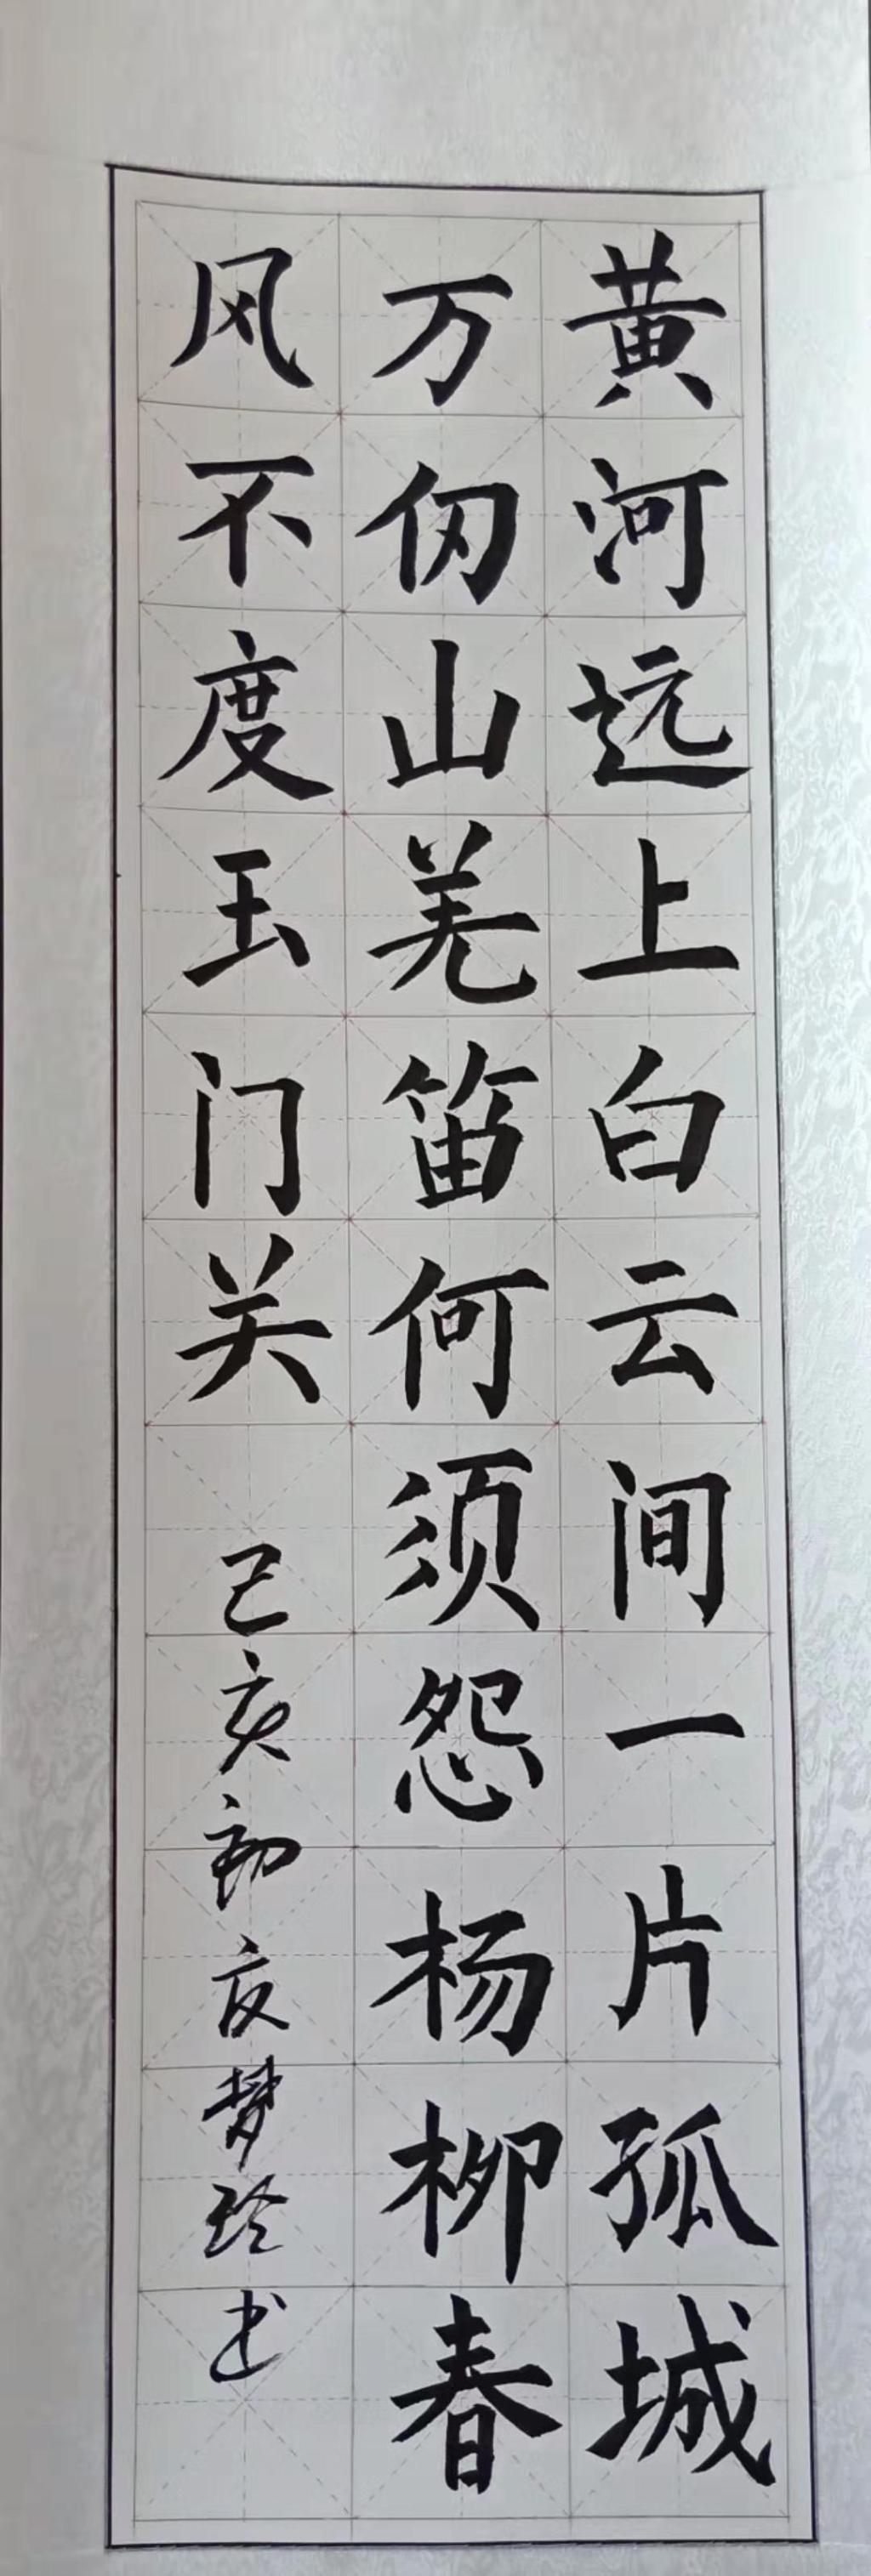 黄河远上白云间一片孤城
万仞山羌笛何须怨杨柳春
风不度玉门关 己亥初夏梦玲书